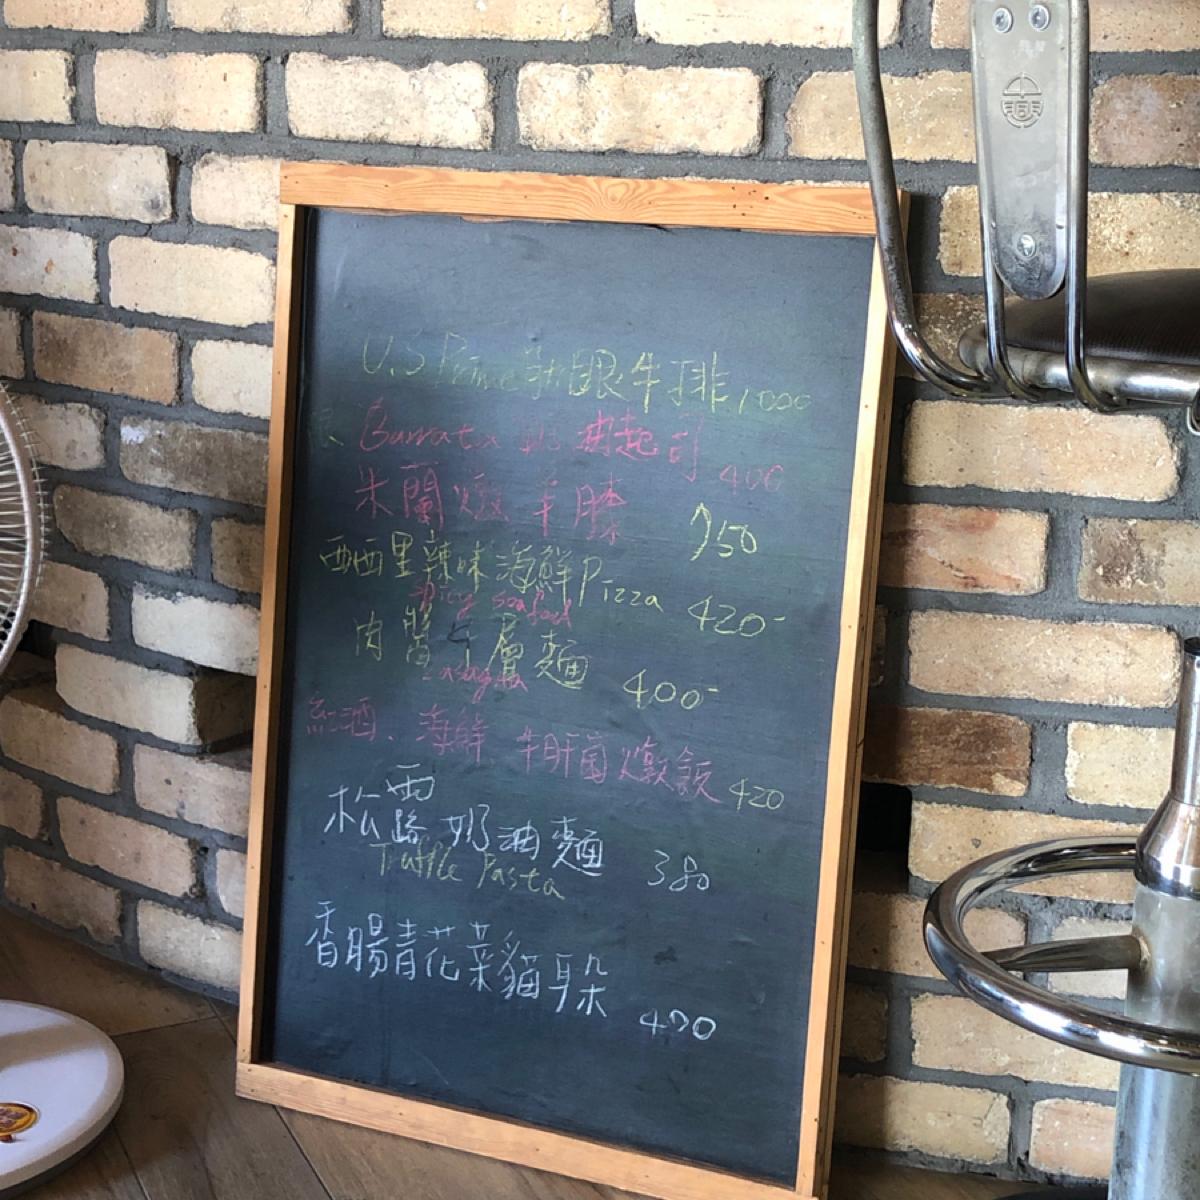 U.S Prime 肋眼牛排 1000
Burrata 奶油起司 400
米蘭燉羊膝 750
西西里辣味海鮮 Pizza 420-
Spicy seafood
肉醬千層麵 400-
Lasagna
紅酒、海鮮、牛肝菌燉飯 420
松露奶油麵 380
Truffle Pasta
香腸青花菜貓耳朵